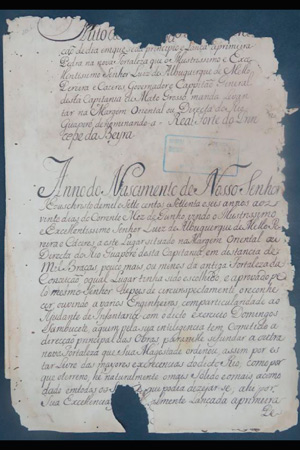 Auto de
ção do dia em que se dá principio e lança a primeira
Pedra na nova fortaleza que o Illustrissimo e Exce
llentissimo Senhor Luiz de Albuquerque de Mello
Pereira e Caceres Governador e Capitão General
desta Capitania de Mato Grosso manda levan
tar na Margem Oriental ou Direita do Rio
Guaporé denominando-a = Real Forte do Prin
cepe da Beyra
Anno do Nascimento de Nosso Senhor
Jesus christo de mil e Sette centos e Settenta e seis annos aos
vinte dias do Corrente Mez de Junho vindo o Illustrissimo
e Excellentissimo Senhor Luiz de Albuquerque de Mello Pe
reira e Cáceres a este Lugar situado na Margem Oriental ou
Direita do Rio Guaporé desta Capitania em distancia de
Mil Braças pouco mais ou menos da antiga Fortaleza da
Conceição o qual Lugar tinha sido escolhido, e aprovado pe
lo mesmo Senhor depois de circunspectamente o reconhe
cer ouvindo a varios Engenheiros com particularidade ao
Ajudante de Infantaria com o dicto exercicio Domingos
Sambuceti, a quem pela sua inteligencia tem Comettido a
direcção principal das Obras para nelle se fundar a outra
nova fortaleza que Sua Magestade ordenou, assim por es
tar Livre das mayores excrescencias do dicto Rio, como por
que o terreno, he naturalmente o mais solido com as acomo
didade em todas os que podia dezejar se, ahi por
Sua Excellencia solemente Lançada a primeira